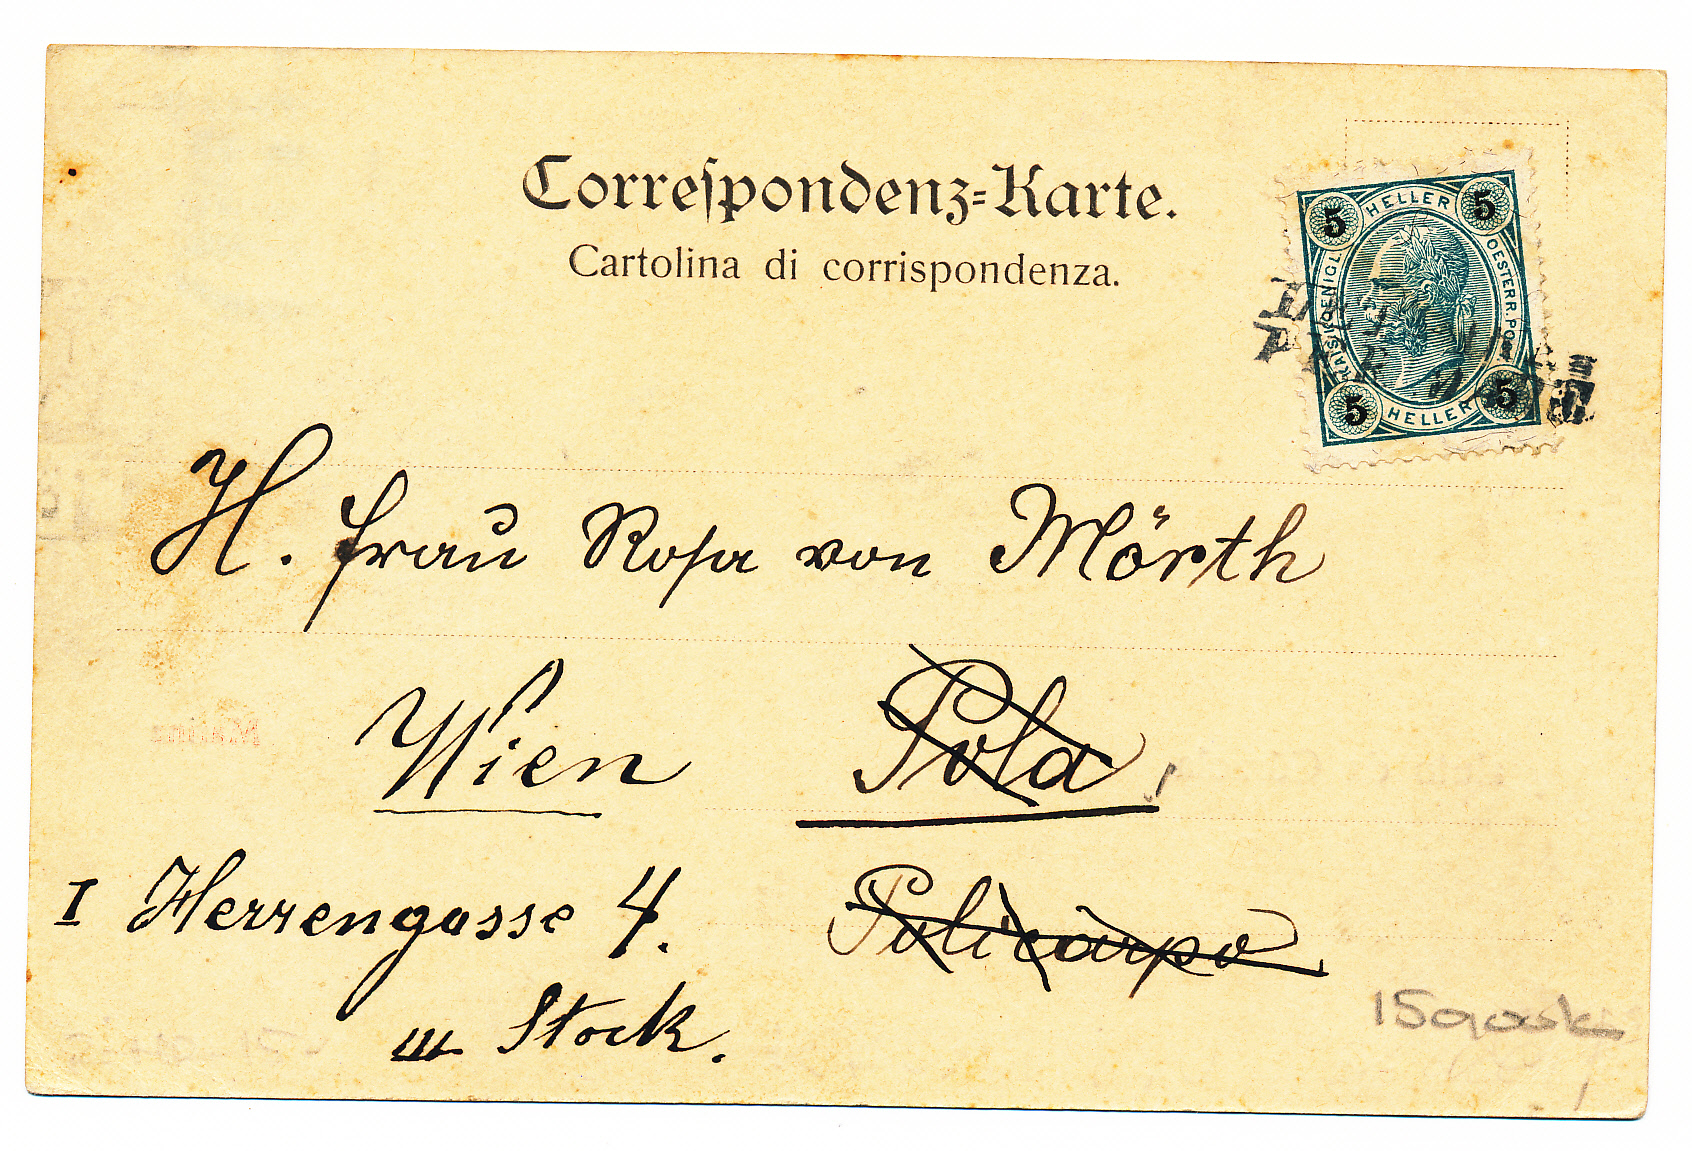 Correspondenz-Karte.
Cartolina di corrispondenza.
5 HELLER 5
KAIS. KOENIGL. OESTERR. POST
5 HELLER 5
H. Frau Rosa von Mörth
Wien Pola
I Herrengasse 4. Policarpo
III Stock.